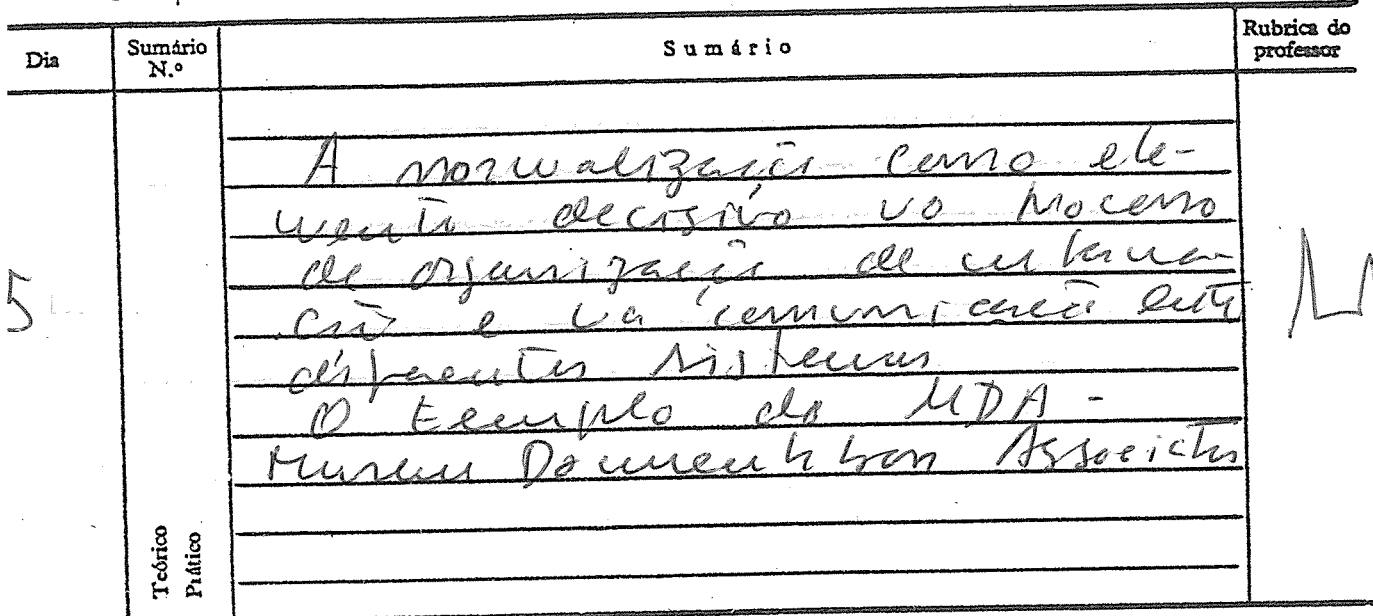 Dia Sumário N.º Sumário Rubrica do professor
A normalização como ele-
mento decisivo no processo
de organização de informa-
ção e na comunicação entre
diferentes sistemas
O exemplo da MDA -
Museum Documentation Association
5
Teórico
Prático